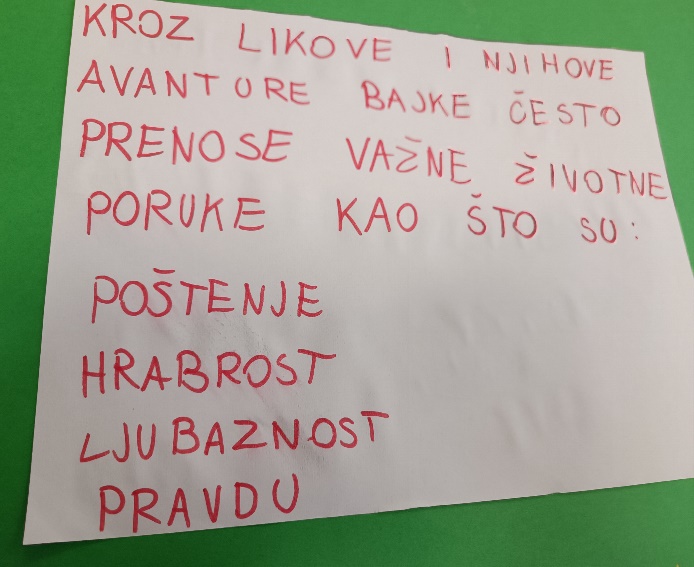 KROZ LIKOVE I NJIHOVE
AVANTURE BAJKE ČESTO
PRENOSE VAŽNE ŽIVOTNE
PORUKE KAO ŠTO SU:
POŠTENJE
HRABROST
LJUBAZNOST
PRAVDU